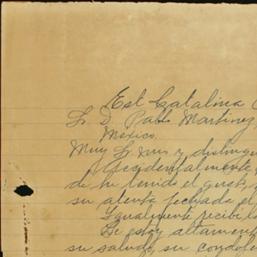 Est Catalina
Sr D. Pablo Martinez
México.
Muy Sr mio y distingu
Accidentalmente,
de he tenido el gust
su atenta fechada el
Igualmente recibe l
Le estoy altament
su saludo, su condole